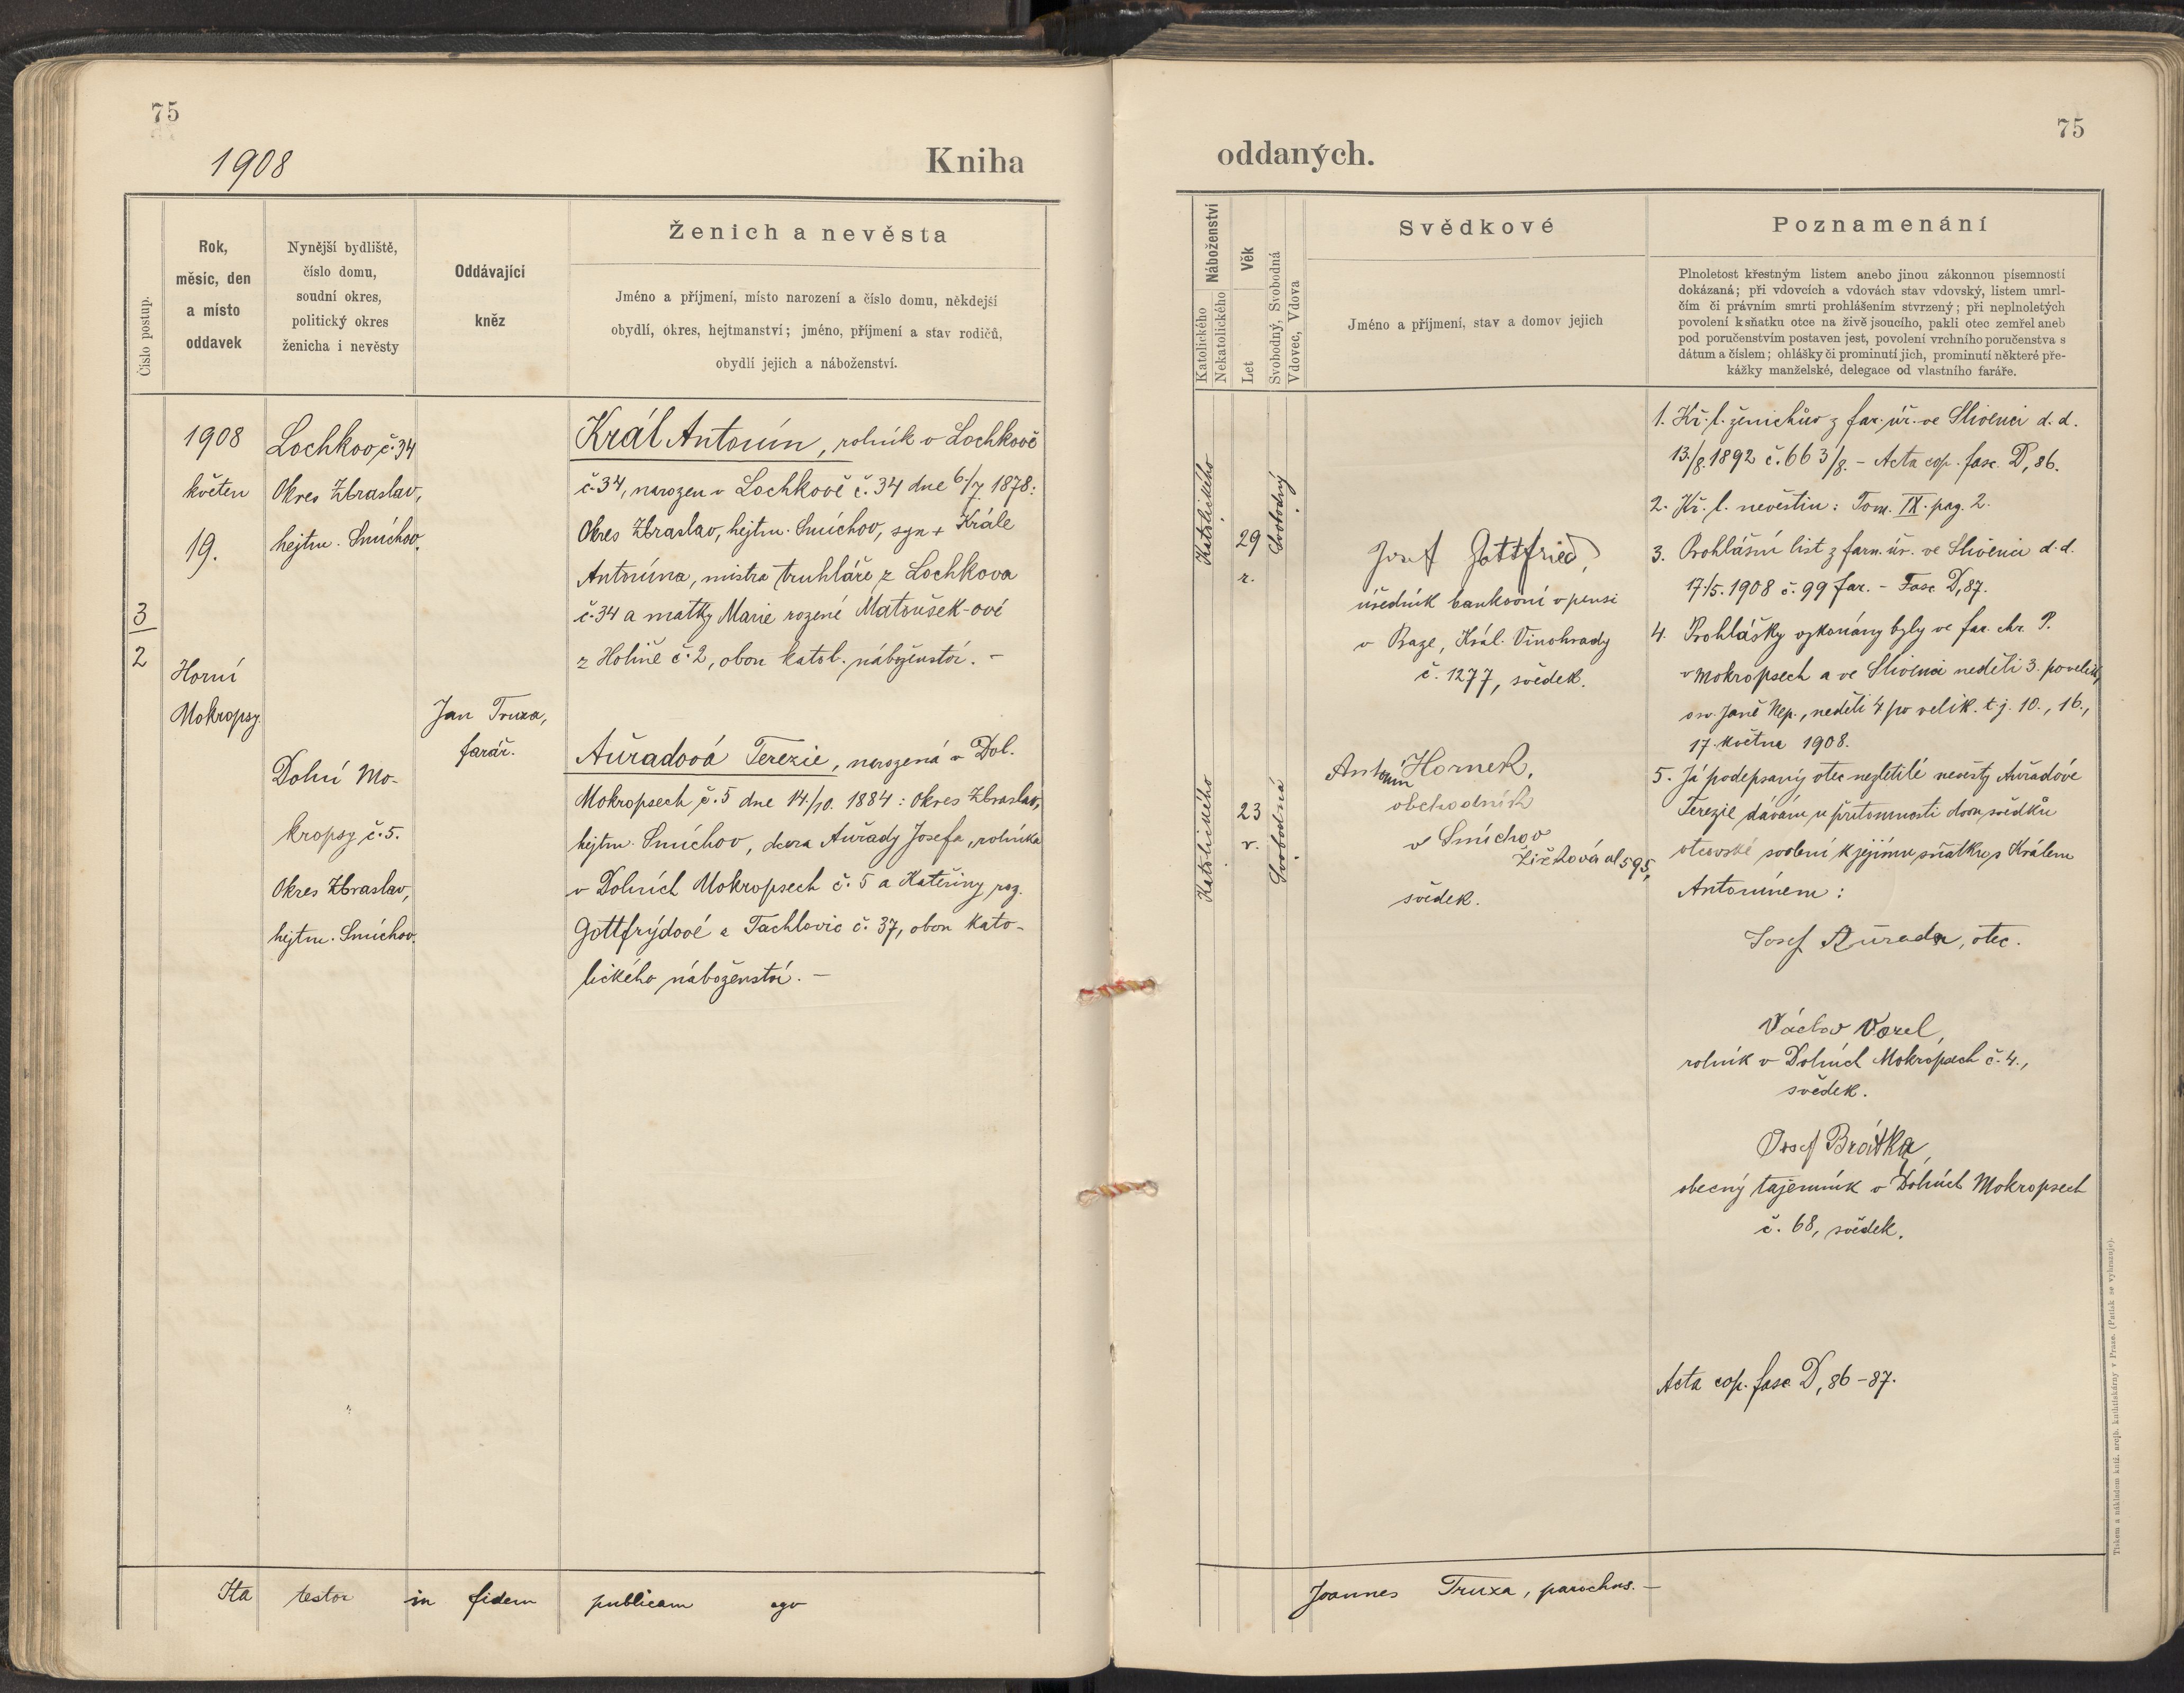 75
1908
Kniha
Číslo postup.
Rok,
měsíc, den
a místo
oddavek
Nynější bydliště,
číslo domu,
soudní okres,
politický okres
ženicha i nevěsty
Oddávající
kněz
Ženich a nevěsta
Jméno a příjmení, místo narození a číslo domu, někdejší
obydlí, okres, hejtmanství; jméno, příjmení a stav rodičů,
obydlí jejich a náboženství.
3
2
1908
květen
19.
Horní
Mokropsy
Lochkov č. 34
Okres Zbraslav,
hejtm. Smíchov.
Dolní Mo-
kropsy č. 5.
Okres Zbraslav,
hejtm. Smíchov.
Jan Truxa,
farář.
Král Antonín, rolník v Lochkově
č. 34, narozen v Lochkově č. 34 dne 6/7 1878:
Okres Zbraslav, hejtm. Smíchov, syn + Krále
Antonína, mistra truhláře z Lochkova
č. 34 a matky Marie rozené Matoušek-ové
z Holině č. 2, obou katol. náboženství. –
Auřadová Terezie, narozená v Dol.
Mokropsech č. 5 dne 14./10. 1884: Okres Zbraslav,
hejtm. Smíchov, dcera Auřady Josefa, rolníka
v Dolních Mokropsech č. 5 a Kateřiny roz.
Gottfrýdové z Tachlovic č. 37, obou kato-
lického náboženství. –
Ita testor in fidem publicam ego
75
oddaných.
Náboženství
Katolického
Nekatolického
Věk
Let
Svobodný, Svobodná
Vdovec, Vdova
Svědkové
Jméno a příjmení, stav a domov jejich
Poznamenání
Plnoletost křestným listem anebo jinou zákonnou písemností
dokázaná; při vdovcích a vdovách stav vdovský, listem umrl-
čím či právním smrti prohlášením stvrzený; při neplnoletých
povolení k sňatku otce na živě jsoucího, pakli otec zemřel aneb
pod poručenstvím postaven jest, povolení vrchního poručenstva s
dátum a číslem; ohlášky či prominutí jich, prominutí některé pře-
kážky manželské, delegace od vlastního faráře.
Katolického
29
r.
Svobodný
Katolického
23
r.
Svobodná
Josef Gottfried,
úředník bankovní v pensi
v Praze, Král. Vinohrady
č. 1277, svědek.
Antonín Hornek,
obchodník
v Smíchov
Žižkova ul 595,
svědek.
1. Kř. l. ženichův z far. úř. ve Slivenci d. d.
13./8. 1892 č. 663/8. – Acta cop. fasc. D, 86.
2. Kř. l. nevěstin: Tom. IX. pag. 2.
3. Prohlášní list z farn. úř. ve Slivenci d. d.
17./5. 1908 č. 99 far. – Fasc D, 87.
4. Prohlášky vykonány byly ve far. chr. P.
v Mokropsech a ve Slivenci neděli 3. po velik,
sv. Janě Nep., neděli 4 po velik. t. j. 10., 16.,
17. května 1908.
5. Já podepsaný otec nezletilé nevěsty Auřadové
Terezie dávám u přítomnosti dvou svědků
otcovské svolení k jejímu sňatku s Králem
Antonínem:
Josef Auřada, otec.
Václav Vorel,
rolník v Dolních Mokropsech č. 4.,
svědek.
Josef Brátka,
obecný tajemník v Dolních Mokropsech
č. 68, svědek.
Acta cop. fasc. D, 86–87.
Joannes Truxa, parochus. –
Tiskem a nákladem kníž. arcib. knihtiskárny v Praze. (Patisk se vyhrazuje).